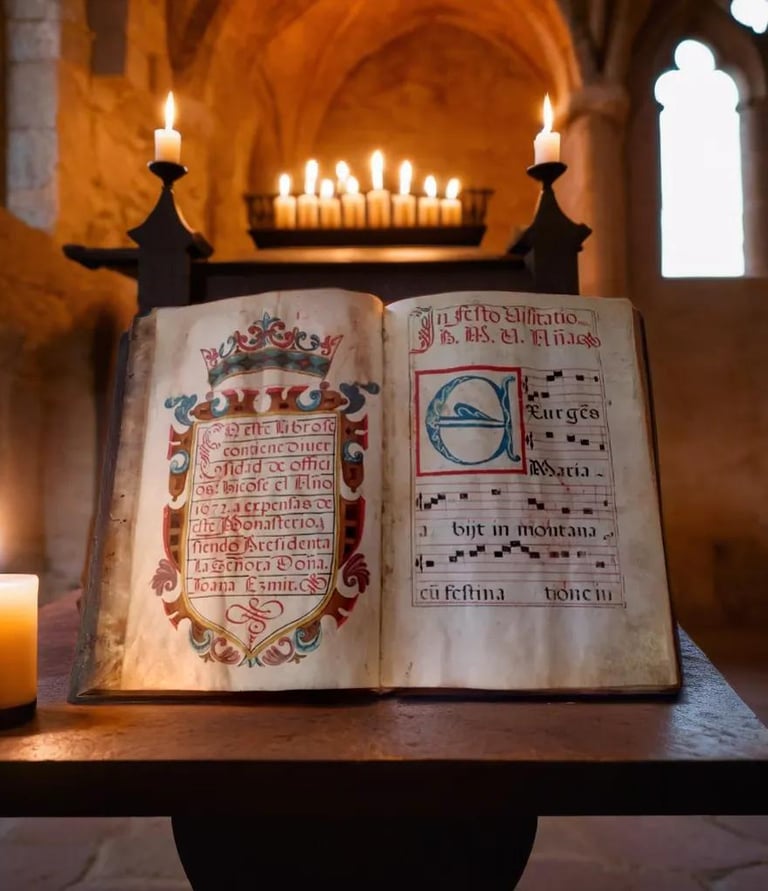 En este libro se
contiene diuer
sidad de offici
os: hicose el Año
1672. a expensas de
este Monasterio,
siendo Presidenta
La Señora Doña.
Ioana Ezmir.
In festo Uisitatio..
B. M. U. Añas
EXurgēs
Maria
a bijt in montana
cū festina tione in